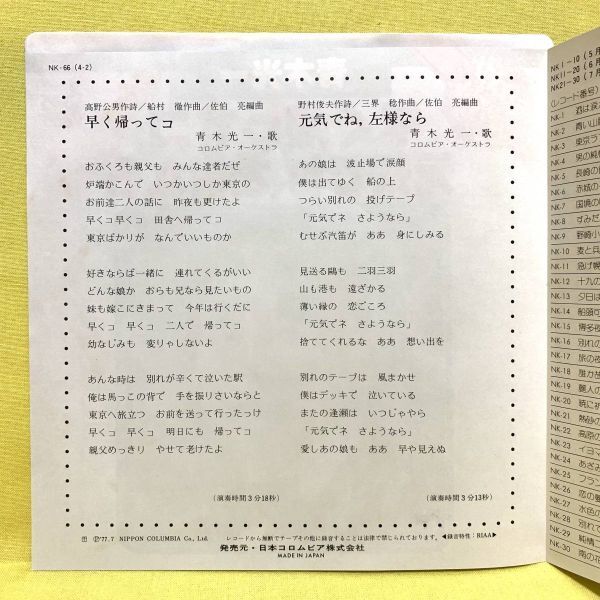 NK-66 (4-2)
高野公男作詩／船村 徹作曲／佐伯 亮編曲
早く帰ってコ
青木光一・歌
コロムビア・オーケストラ
おふくろも親父も みんな達者だぜ
炉端かこんで いつかいつしか東京の
お前達二人の話に 昨夜も更けたよ
早くコ早くコ 田舎へ帰ってコ
東京ばかりが なんでいいものか
好きならば一緒に 連れてくるがいい
どんな娘か おらも兄なら見たいもの
妹も嫁ごにきまって 今年は行くだに
早くコ 早くコ 二人で 帰ってコ
幼なじみも 変りゃしないよ
あんな時は 別れが辛くて泣いた駅
俺は馬っこの背で 手を振りさいならと
東京へ旅立つ お前を送って行ったっけ
早くコ 早くコ 明日にも 帰ってコ
親父めっきり やせて老けたよ
(演奏時間3分18秒)
野村俊夫作詩／三界 稔作曲／佐伯 亮編曲
元気でね,左様なら
青木光一・歌
コロムビア・オーケストラ
あの娘は 波止場で涙顔
僕は出てゆく 船の上
つらい別れの 投げテープ
「元気でネ さようなら」
むせぶ汽笛が ああ 身にしみる
見送る鷗も 二羽三羽
山も港も 遠ざかる
薄い縁の 恋ごころ
「元気でネ さようなら」
捨ててくれるな ああ 想い出を
別れのテープは 風まかせ
僕はデッキで 泣いている
またの逢瀬は いつじゃやら
「元気でネ さようなら」
愛しあの娘も ああ 早や見えぬ
(演奏時間3分13秒)
Ⓟ'77.7 NIPPON COLUMBIA Co., Ltd.
レコードから無断でテープその他に録音することは法律で禁じられております。
◀録音特性：RIAA▶
発売元・日本コロムビア株式会社
MADE IN JAPAN
NK1-10 (5月
NK11-20 (6月
NK21-30 (7月
(レコード番号)
NK-1 酒は涙
NK-2 青い山
NK-3 東京ラ
NK-4 男の純
NK-5 長崎の
NK-6 赤城の
NK-7 国境の
NK-8 すみだ
NK-9 野崎小
NK-10 麦と兵
NK-11 急げ幌
NK-12 十九の
NK-13 夕日は
NK-14 船頭可
NK-15 博多夜
NK-16 別れの
NK-17 旅の夜
NK-18 誰か故
NK-19 麗人の
NK-20 暁に祈
NK-21 熱砂の
NK-22 高原の
NK-23 イヨマ
NK-24 あざみ
NK-25 フラン
NK-26 恋の曼
NK-27 水色の
NK-28 別れの
NK-29 純情二
NK-30 南の花